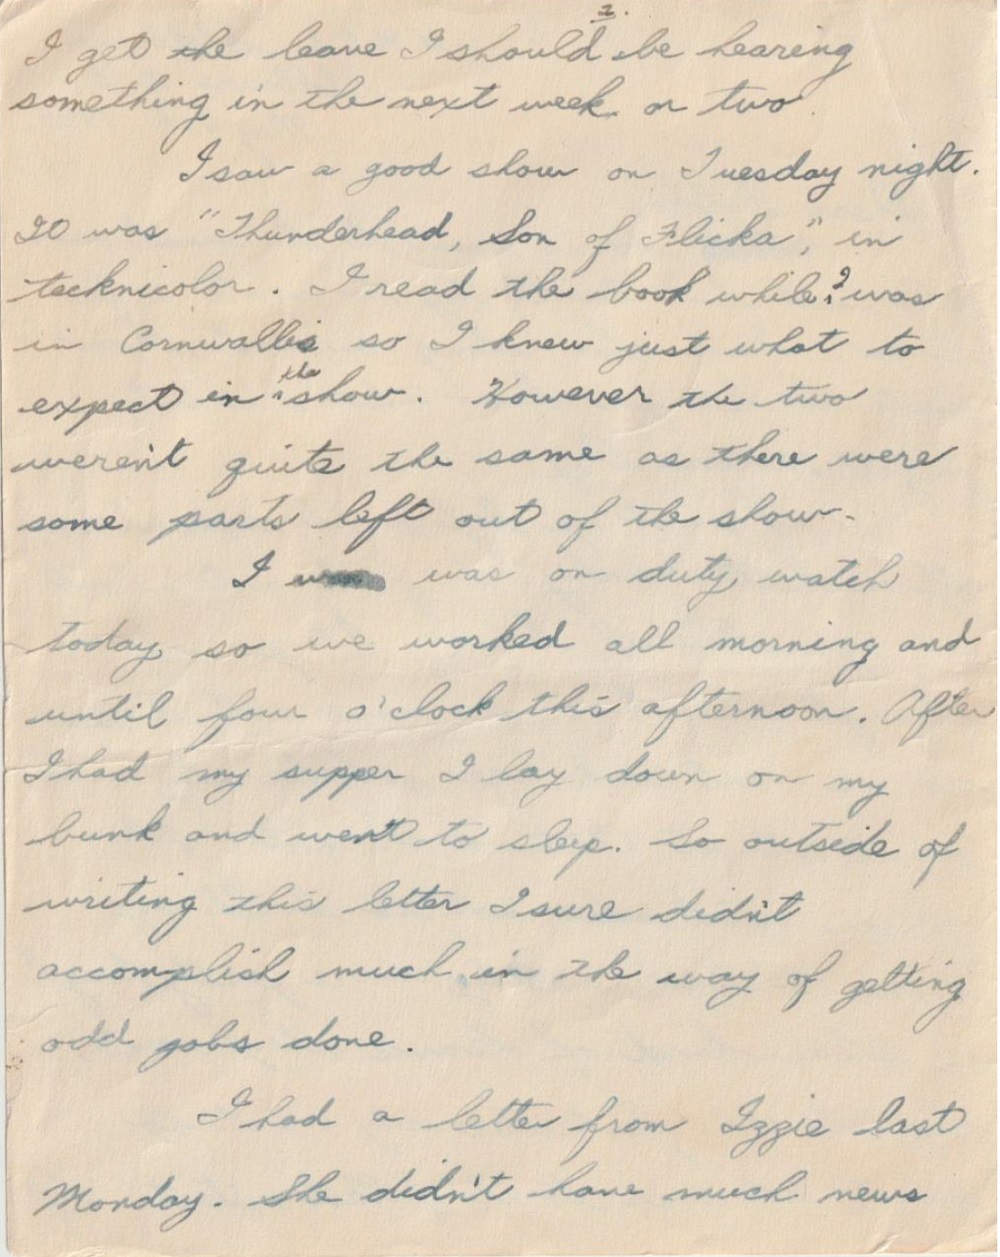 2.
I get the leave I should be hearing
something in the next week or two.
I saw a good show on Tuesday night.
It was "Thunderhead, Son of Flicka", in
tecknicolor. I read the book while I was
in Cornwallis so I knew just what to
expect in the show. However the two
weren't quite the same as there were
some parts left out of the show.
I was on duty watch
today so we worked all morning and
until four o'clock this afternoon. After
I had my supper I lay down on my
bunk and went to sleep. So outside of
writing this letter I sure didn't
accomplish much in the way of getting
odd jobs done.
I had a letter from Izzie last
Monday. She didn't have much news